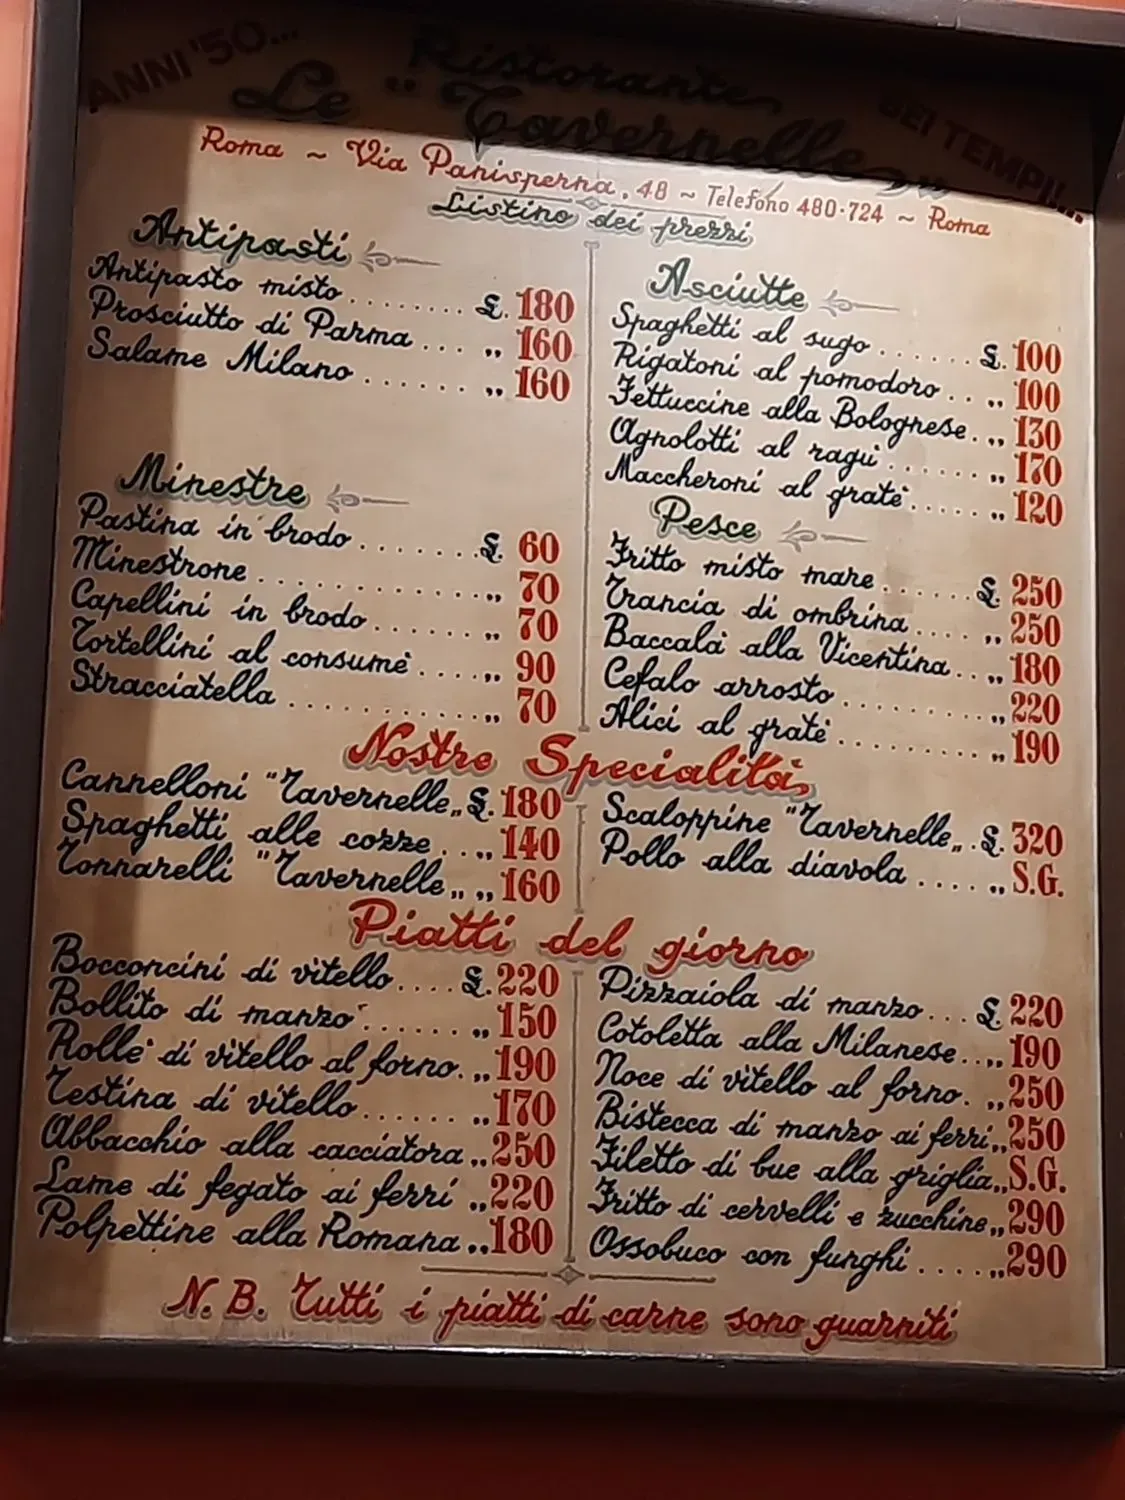 ANNI '50...
Ristorante
Le "Tavernelle"
BEI TEMPI!...
Roma ~ Via Panisperna, 48 ~ Telefono 480-724 ~ Roma
Listino dei prezzi
Antipasti
Antipasto misto ........ £. 180
Prosciutto di Parma ... „ 160
Salame Milano ........ „ 160
Minestre
Pastina in brodo ........ £. 60
Minestrone ............. „ 70
Capellini in brodo ....... „ 70
Tortellini al consumè ..... „ 90
Stracciatella ............ „ 70
Asciutte
Spaghetti al sugo ...... £. 100
Rigatoni al pomodoro .. „ 100
Fettuccine alla Bolognese. „ 130
Agnolotti al ragù ....... „ 170
Maccheroni al gratè ..... „ 120
Pesce
Fritto misto mare ...... £. 250
Trancia di ombrina .... „ 250
Baccalà alla Vicentina... „ 180
Cefalo arrosto ......... „ 220
Alici al gratè .......... „ 190
Nostre Specialità
Cannelloni "Tavernelle„ £. 180
Spaghetti alle cozze ... „ 140
Tonnarelli "Tavernelle„ „ 160
Scaloppine "Tavernelle„ . £. 320
Pollo alla diavola .... „ S.G.
Piatti del giorno
Bocconcini di vitello .... £. 220
Bollito di manzo ....... „ 150
Rollè di vitello al forno. „ 190
Testina di vitello ....... „ 170
Abbacchio alla cacciatora „ 250
Lame di fegato ai ferri „ 220
Polpettine alla Romana „ 180
Pizzaiola di manzo ... £. 220
Cotoletta alla Milanese .. „ 190
Noce di vitello al forno. „ 250
Bistecca di manzo ai ferri „ 250
Filetto di bue alla griglia „ S.G.
Fritto di cervelli e zucchine „ 290
Ossobuco con funghi .... „ 290
N.B. Tutti i piatti di carne sono guarniti